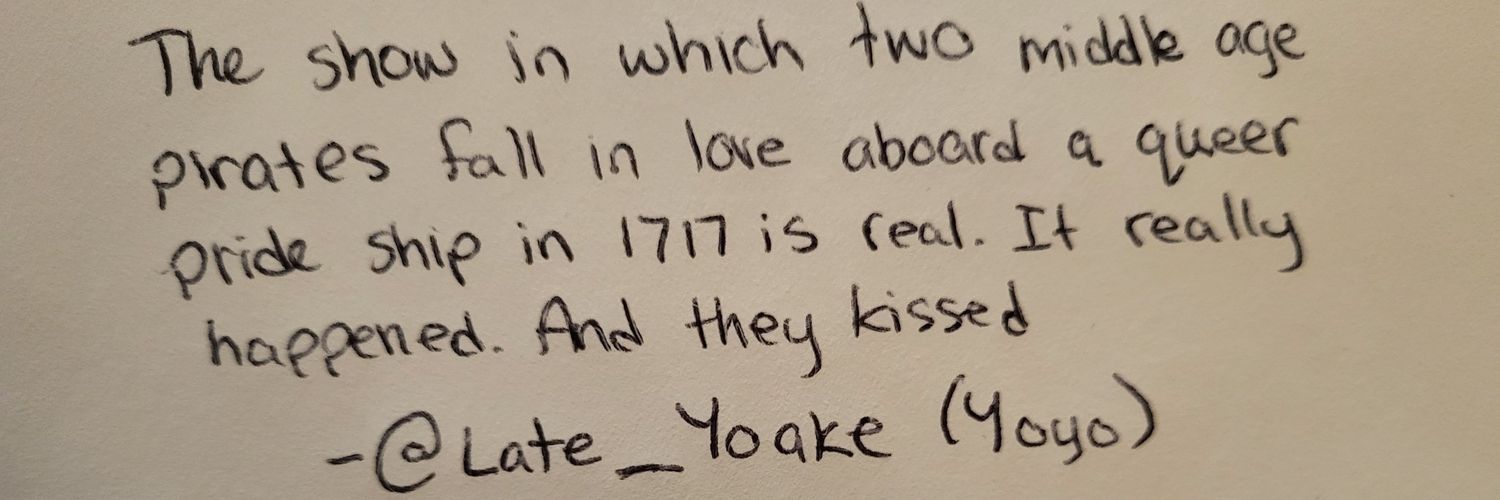 The show in which two middle age
pirates fall in love aboard a queer
pride ship in 1717 is real. It really
happened. And they kissed
-@Late_Yoake (Yoyo)